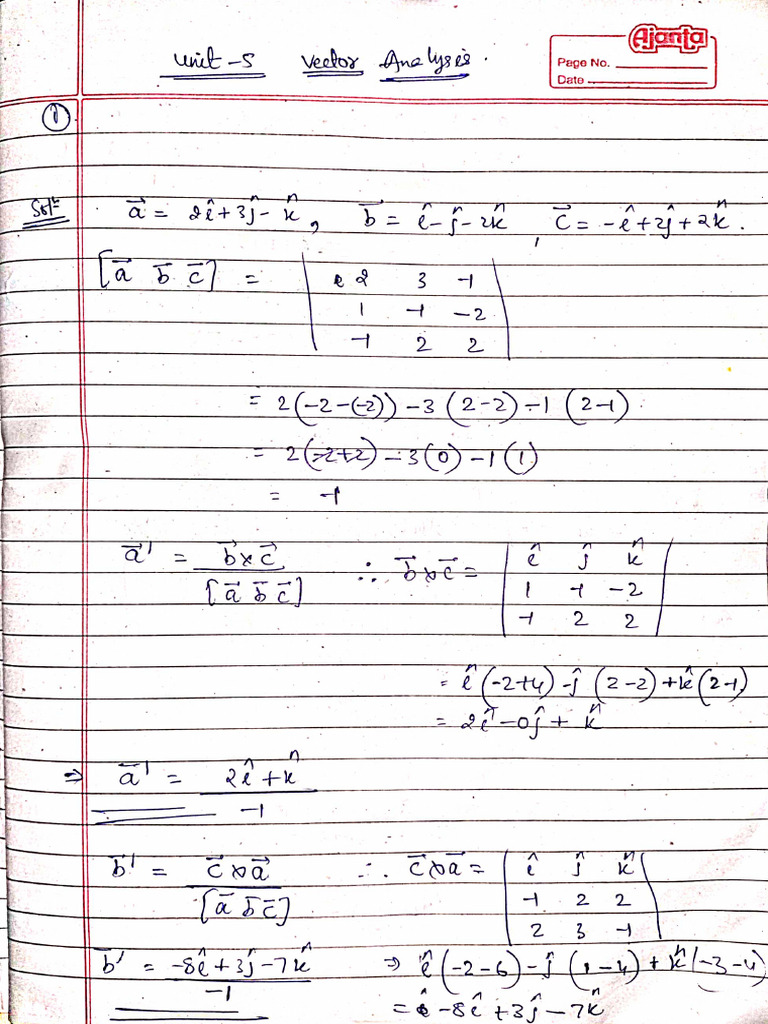 Ajanta
Page No.
Date
Unit-5 Vector Analysis.
①
Solⁿ
a⃗ = 2î+3ĵ-k̂, b⃗ = î-ĵ-2k̂, c⃗ = -î+2ĵ+2k̂.
[a⃗ b⃗ c⃗] = | 2 3 -1 |
| 1 -1 -2 |
| -1 2 2 |
= 2(-2-(-2))-3(2-2)-1(2-1)
= 2(-2+2)-3(0)-1(1)
= -1
a⃗' = b⃗×c⃗ / [a⃗ b⃗ c⃗] ∴ b⃗×c⃗ = | î ĵ k̂ |
| 1 -1 -2 |
| -1 2 2 |
= î(-2+4)-ĵ(2-2)+k̂(2-1)
= 2î-0ĵ+k̂
⇒ a⃗' = 2î+k̂ / -1
b⃗' = c⃗×a⃗ / [a⃗ b⃗ c⃗] ∴ c⃗×a⃗ = | î ĵ k̂ |
| -1 2 2 |
| 2 3 -1 |
b⃗' = -8î+3ĵ-7k̂ / -1 ⇒ î(-2-6)-ĵ(1-4)+k̂(-3-4)
= -8î+3ĵ-7k̂